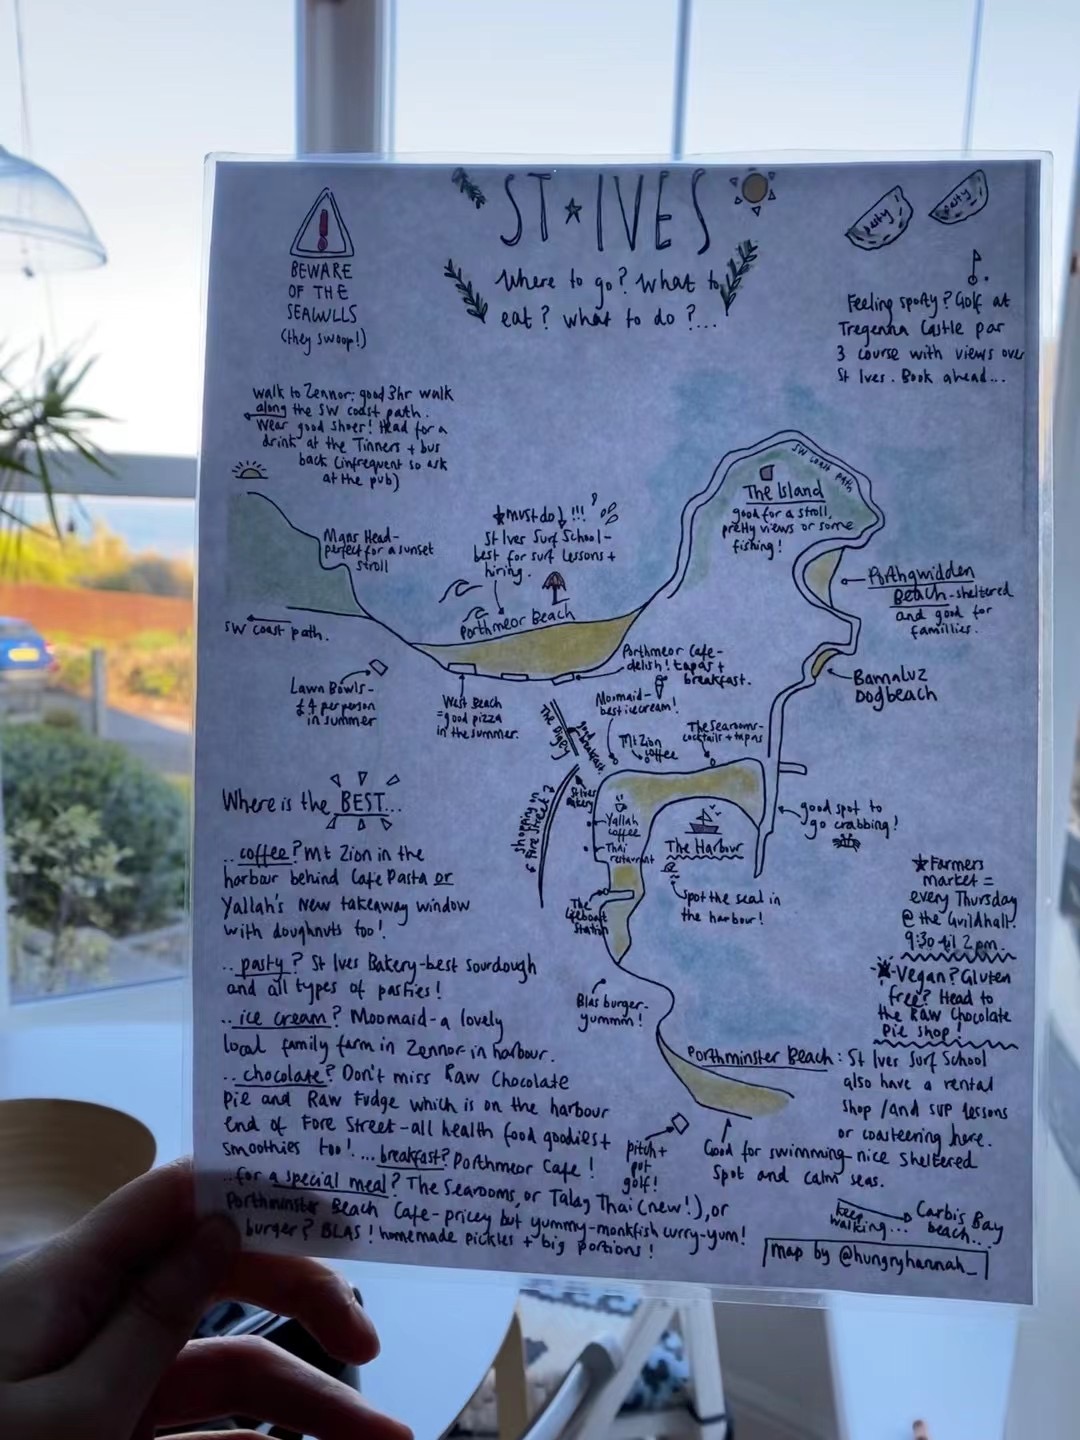 ST★IVES
Where to go? What to
eat? what to do?...
BEWARE
OF THE
SEAGULLS
(they swoop!)
pasty
pasty
Feeling sporty? Golf at
Tregenna Castle par
3 course with views over
St Ives. Book ahead...
walk to Zennor: good 3hr walk
along the SW coast path.
Wear good shoes! Head for a
drink at the Tinners + bus
back (infrequent so ask
at the pub)
Mans Head-
perfect for a sunset
stroll
SW coast path.
★must do!!!
St Ives Surf School-
best for surf lessons +
hiring.
Porthmeor Beach
SW coast path
The Island
good for a stroll,
pretty views or some
fishing!
Porthgwidden
Beach-sheltered
and good for
famillies.
Bamaluz
Dogbeach
Lawn Bowls-
£4 per person
in summer
West Beach
=good pizza
in the summer.
Porthmeor Cafe-
delish! tapas +
breakfast.
Moomaid-
best icecream!
The Digey
good breakfast.
Mt Zion
coffee
The Searooms-
cocktails + tapas
St Ives
Bakery
shopping on
Fore Street
Yallah
coffee
Thai
restaurant
The Harbour
good spot to
go crabbing!
spot the seal in
the harbour!
The
Lifeboat
Station
Blas burger-
yummm!
★Farmers
market =
every Thursday
@ the Guildhall.
9:30 til 2pm.
-Vegan? Gluten
free? Head to
the Raw Chocolate
Pie shop!
Porthminster Beach: St Ives Surf School
also have a rental
shop/and SUP lessons
or coasteering here.
Good for swimming-nice sheltered
spot and calm seas.
pitch+
put
golf!
keep
walking...
Carbis Bay
beach...
Where is the BEST...
..coffee? Mt Zion in the
harbour behind Cafe Pasta or
Yallah's new takeaway window
with doughnuts too!
..pasty? St Ives Bakery-best sourdough
and all types of pasties!
..ice cream? Moomaid-a lovely
local family farm in Zennor in harbour.
..chocolate? Don't miss Raw Chocolate
Pie and Raw Fudge which is on the harbour
end of Fore Street-all health food goodies+
smoothies too! ...breakfast? Porthmeor Cafe!
..for a special meal? The Searooms, or Talay Thai (new!), or
Porthminster Beach Cafe-pricey but yummy-monkfish curry-yum!
burger? BLAS! homemade pickles + big portions!
map by @hungryhannah_